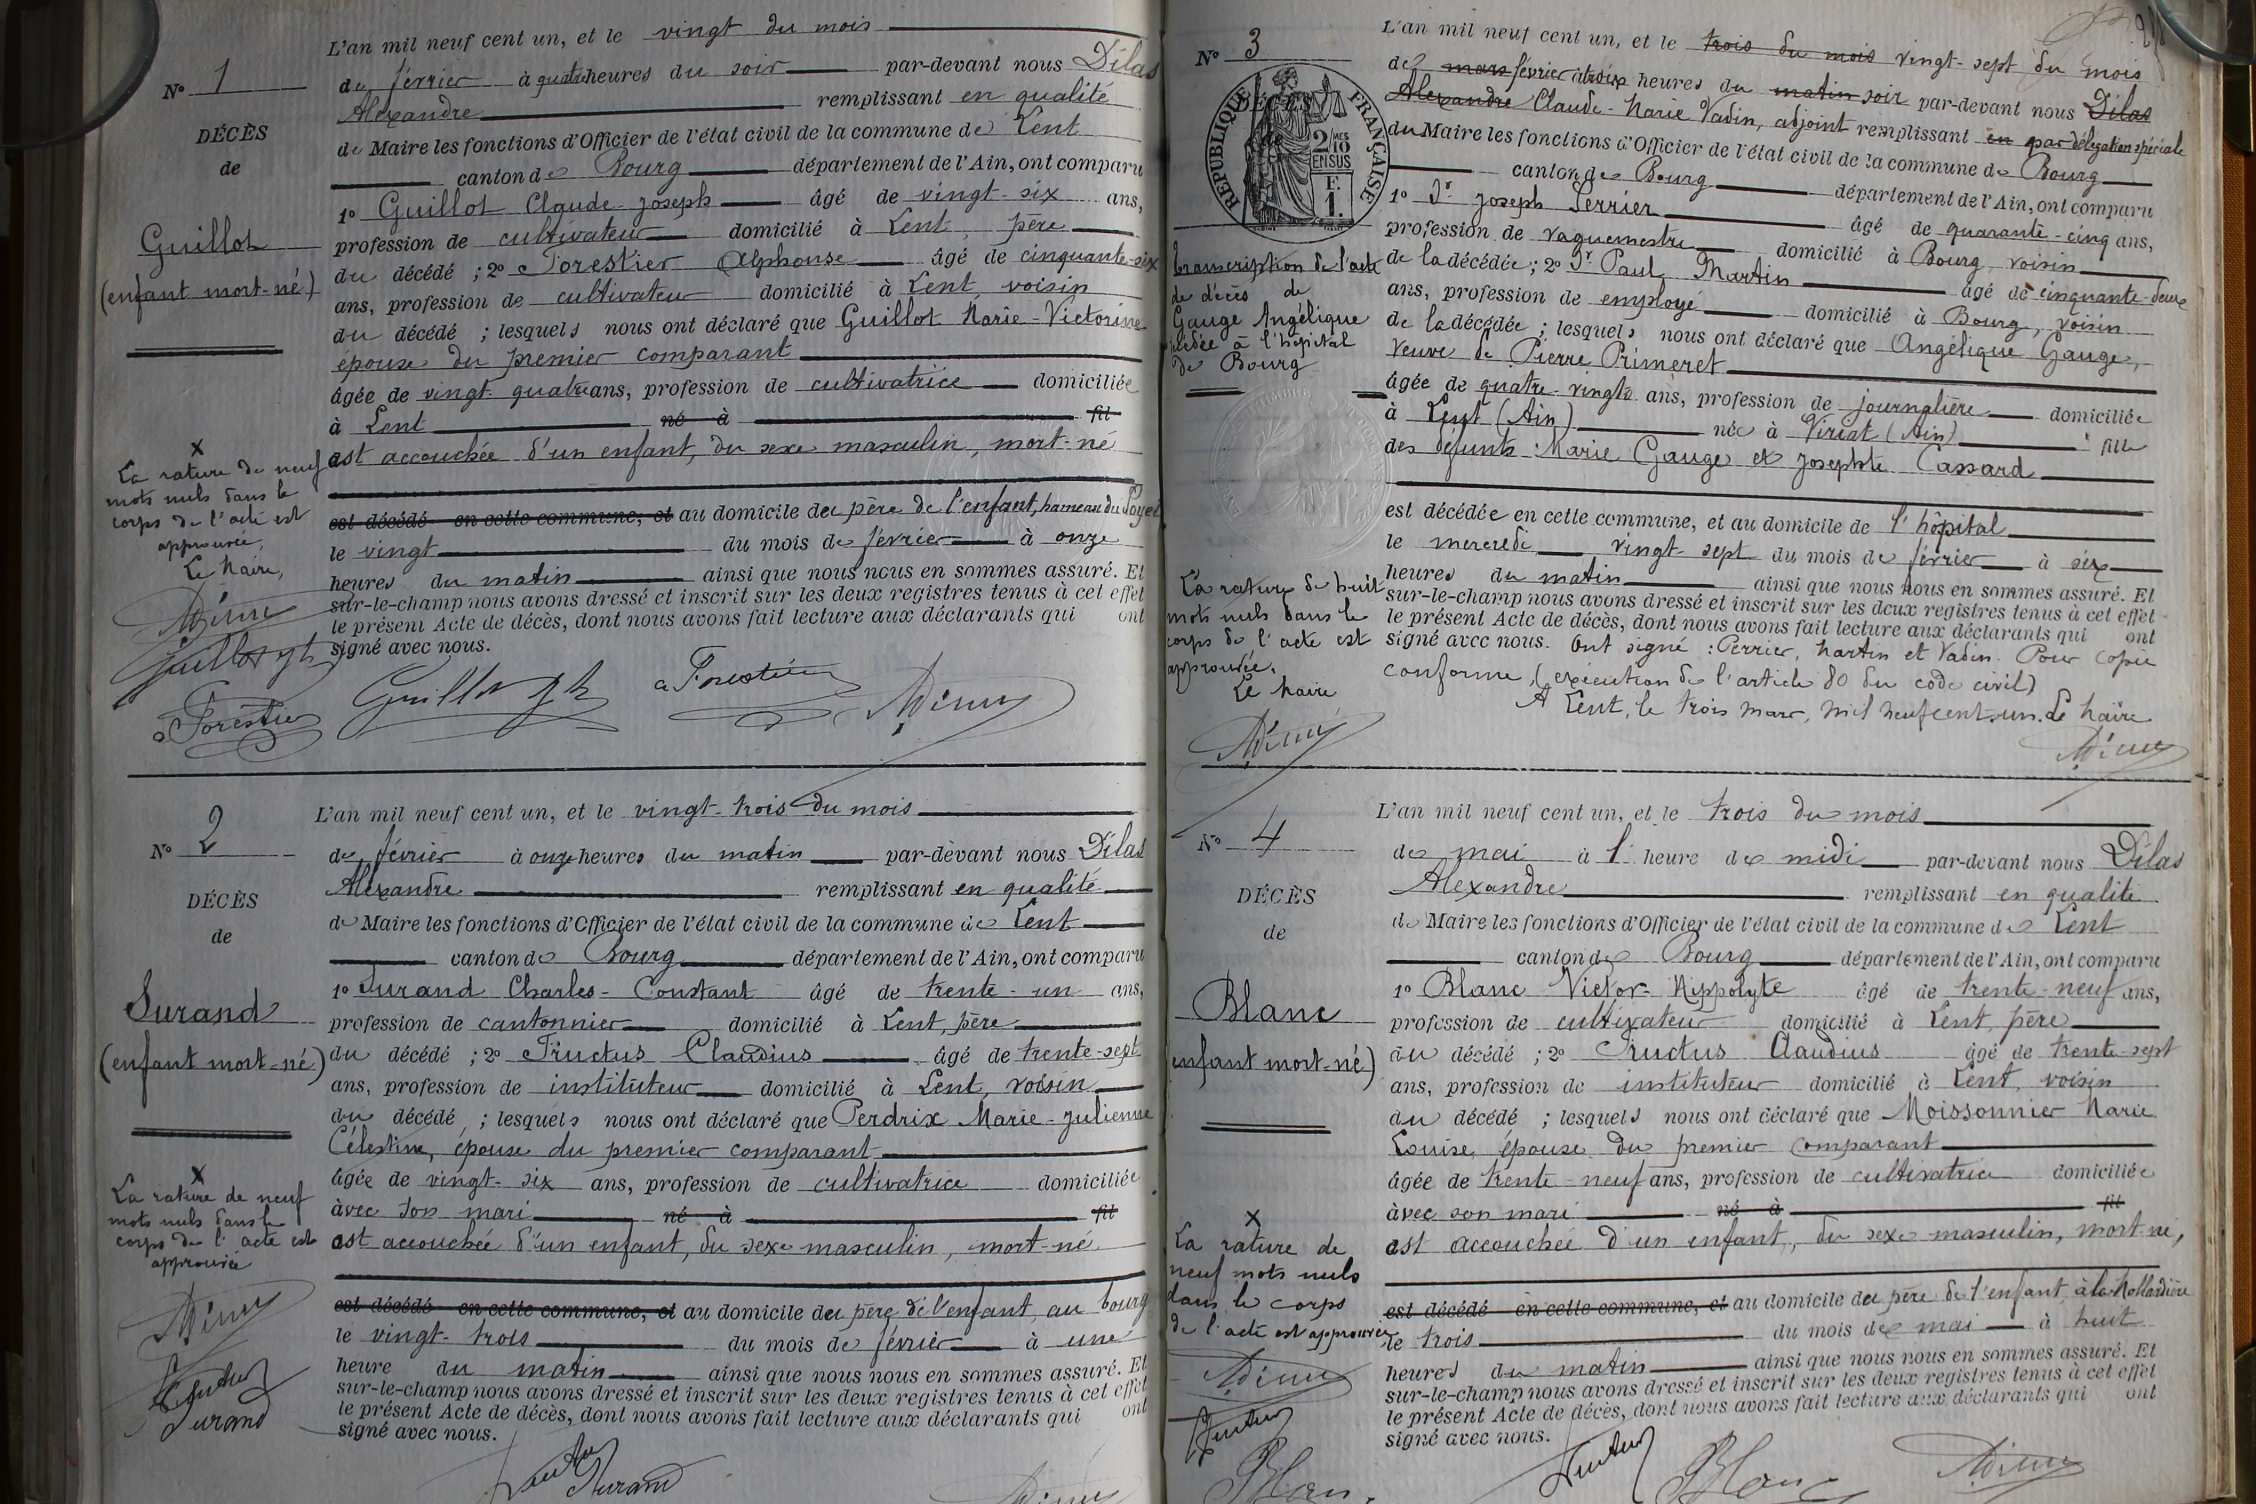 N° 1
DÉCÈS
de
Guillot
(enfant mort-né)
L'an mil neuf cent un, et le vingt du mois
de février à quatre heures du soir par-devant nous Dilas
Alexandre remplissant en qualité
de Maire les fonctions d'Officier de l'état civil de la commune de Lent
canton de Bourg département de l'Ain, ont comparu
1° Guillot Claude-Joseph âgé de vingt-six ans,
profession de cultivateur domicilié à Lent, père
du décédé ; 2° Forestier Alphonse âgé de cinquante-six
ans, profession de cultivateur domicilié à Lent, voisin
du décédé ; lesquels nous ont déclaré que Guillot Marie-Victorine
épouse du premier comparant
âgée de vingt-quatre ans, profession de cultivatrice domiciliée
à Lent né à fil
est accouchée d'un enfant, du sexe masculin, mort-né
est décédé en cette commune, et au domicile du père de l'enfant, hameau du
le vingt du mois de février à onze
heures du matin ainsi que nous nous en sommes assuré. Et
sur-le-champ nous avons dressé et inscrit sur les deux registres tenus à cet effet
le présent Acte de décès, dont nous avons fait lecture aux déclarants qui ont
signé avec nous.
x
La rature de neuf
mots nuls dans le
corps de l'acte est
approuvée,
Le Maire,
Dilas
Guillot
a Forestier
Guillot
a Forestier
Dilas
N° 2
DÉCÈS
de
Durand
(enfant mort-né)
L'an mil neuf cent un, et le vingt-trois du mois
de février à onze heures du matin par-devant nous Dilas
Alexandre remplissant en qualité
de Maire les fonctions d'Officier de l'état civil de la commune de Lent
canton de Bourg département de l'Ain, ont comparu
1° Durand Charles-Constant âgé de trente-un ans,
profession de cantonnier domicilié à Lent, père
du décédé ; 2° Fructus Claudius âgé de trente-sept
ans, profession de instituteur domicilié à Lent, voisin
du décédé ; lesquels nous ont déclaré que Perdrix Marie-Julienne
Célestine, épouse du premier comparant
âgée de vingt-six ans, profession de cultivatrice domiciliée
avec son mari né à fil
est accouchée d'un enfant, du sexe masculin, mort-né
est décédé en cette commune, et au domicile du père de l'enfant, au bourg
le vingt-trois du mois de février à une
heure du matin ainsi que nous nous en sommes assuré. Et
sur-le-champ nous avons dressé et inscrit sur les deux registres tenus à cet effet
le présent Acte de décès, dont nous avons fait lecture aux déclarants qui ont
signé avec nous.
x
La rature de neuf
mots nuls dans le
corps de l'acte est
approuvée
Dilas
Fructus
Durand
Fructus
Durand
Dilas
N° 3
DÉCÈS
RÉPUBLIQUE FRANÇAISE
2/10
EN SUS
F.
1.
Transcription de l'acte
de décès de
Gauge Angélique
décédée à l'hôpital
de Bourg
L'an mil neuf cent un, et le trois du mois vingt-sept du mois
de mars février à trois heures du matin soir par-devant nous Dilas
Alexandre Claude-Marie Vadin, adjoint remplissant en par délégation spéciale
du Maire les fonctions d'Officier de l'état civil de la commune de Bourg
canton de Bourg département de l'Ain, ont comparu
1° Sr Joseph Perrier âgé de quarante-cinq ans,
profession de vaguemestre domicilié à Bourg, voisin
de la décédée ; 2° Sr Paul Martin âgé de cinquante-deux
ans, profession de employé domicilié à Bourg, voisin
de la décédée ; lesquels nous ont déclaré que Angélique Gauge,
veuve de Pierre Primeret
âgée de quatre-vingts ans, profession de journalière domiciliée
à Lent (Ain) née à Viriat (Ain) fille
des défunts : Marie Gauge et Josephte Cassard
est décédée en cette commune, et au domicile de l'hôpital
le mercredi vingt-sept du mois de février à six
heures du matin ainsi que nous nous en sommes assuré. Et
sur-le-champ nous avons dressé et inscrit sur les deux registres tenus à cet effet
le présent Acte de décès, dont nous avons fait lecture aux déclarants qui ont
signé avec nous. Ont signé : Perrier, Martin et Vadin. Pour copie
conforme, (exécution de l'article 80 du code civil)
A Lent, le trois mars, mil neuf cent un. Le Maire
Dilas
La rature de huit
mots nuls dans le
corps de l'acte est
approuvée.
Le Maire
Dilas
N° 4
DÉCÈS
de
Blanc
enfant mort-né)
L'an mil neuf cent un, et le trois du mois
de mai à 1 heure de midi par-devant nous Dilas
Alexandre remplissant en qualité
de Maire les fonctions d'Officier de l'état civil de la commune de Lent
canton de Bourg département de l'Ain, ont comparu
1° Blanc Victor-Hippolyte âgé de trente-neuf ans,
profession de cultivateur domicilié à Lent, père
du décédé ; 2° Fructus Claudius âgé de trente-sept
ans, profession de instituteur domicilié à Lent, voisin
du décédé ; lesquels nous ont déclaré que Moissonnier Marie
Louise, épouse du premier comparant
âgée de trente-neuf ans, profession de cultivatrice domiciliée
avec son mari né à fil
est accouchée d'un enfant, du sexe masculin, mort-né,
est décédé en cette commune, et au domicile du père de l'enfant, à la
le trois du mois de mai à huit
heures du matin ainsi que nous nous en sommes assuré. Et
sur-le-champ nous avons dressé et inscrit sur les deux registres tenus à cet effet
le présent Acte de décès, dont nous avons fait lecture aux déclarants qui ont
signé avec nous.
x
La rature de
neuf mots nuls
dans le corps
de l'acte est approuvée
Dilas
Fructus
Blanc
Fructus
Blanc
Dilas